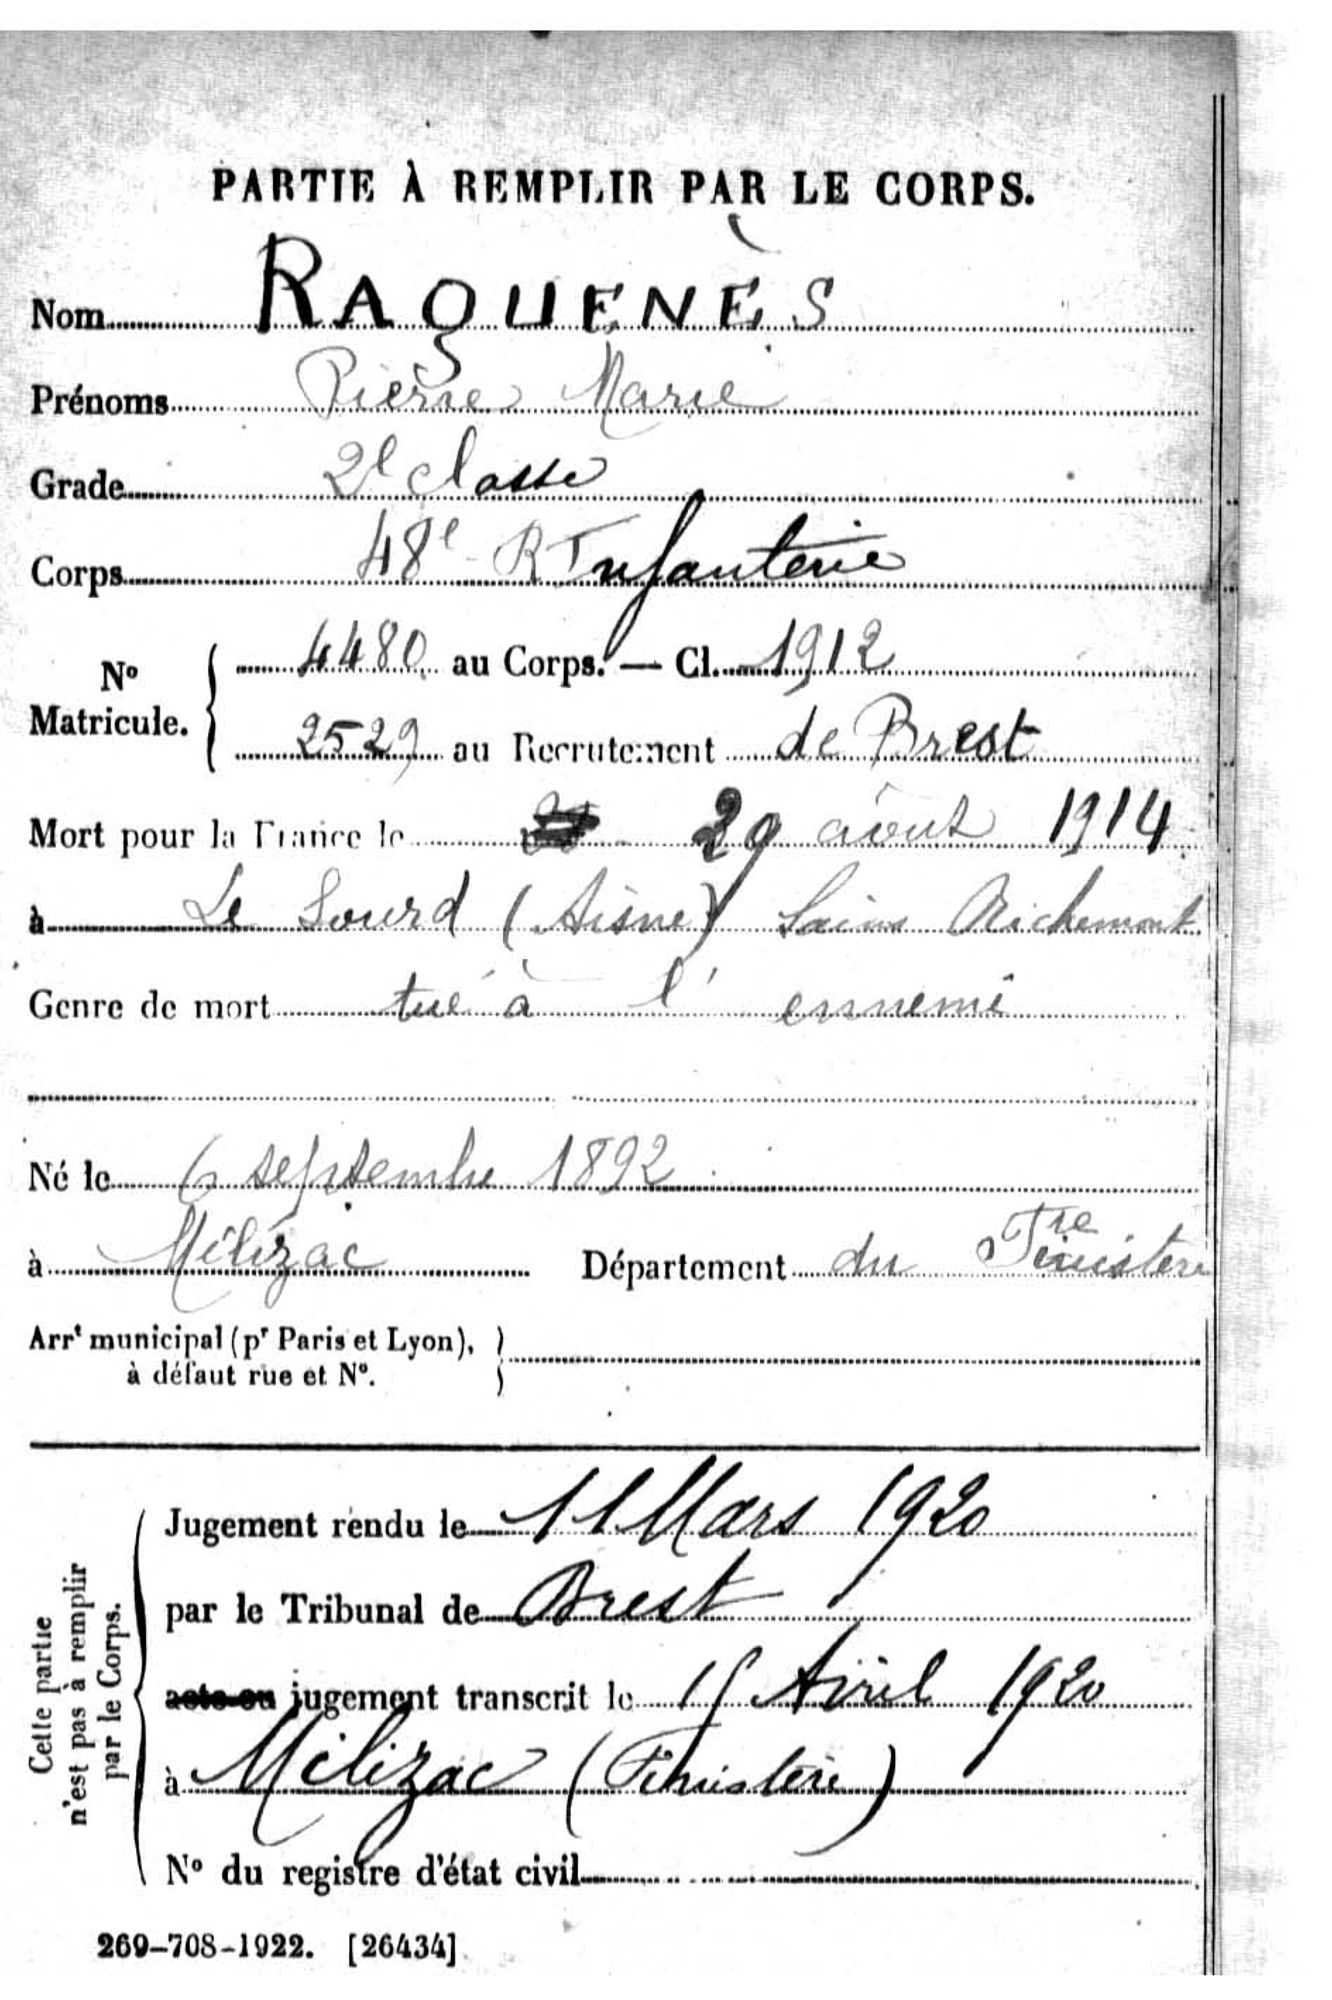 PARTIE À REMPLIR PAR LE CORPS.
Nom RAQUENÈS
Prénoms Pierre Marie
Grade 2e classe
Corps 48e R Infanterie
No Matricule. 4480 au Corps. — Cl. 1912
2529 au Recrutement de Brest
Mort pour la France le 29 août 1914
à Le Sourd (Aisne) Sains Richemont
Genre de mort tué à l'ennemi
Né le 6 septembre 1892
à Milizac Département du Finistère
Arrt municipal (pr Paris et Lyon),
à défaut rue et No.
Cette partie
n'est pas à remplir
par le Corps.
Jugement rendu le 11 Mars 1920
par le Tribunal de Brest
acte ou jugement transcrit le 15 Avril 1920
à Milizac (Finistère)
No du registre d'état civil
269-708-1922. [26434]